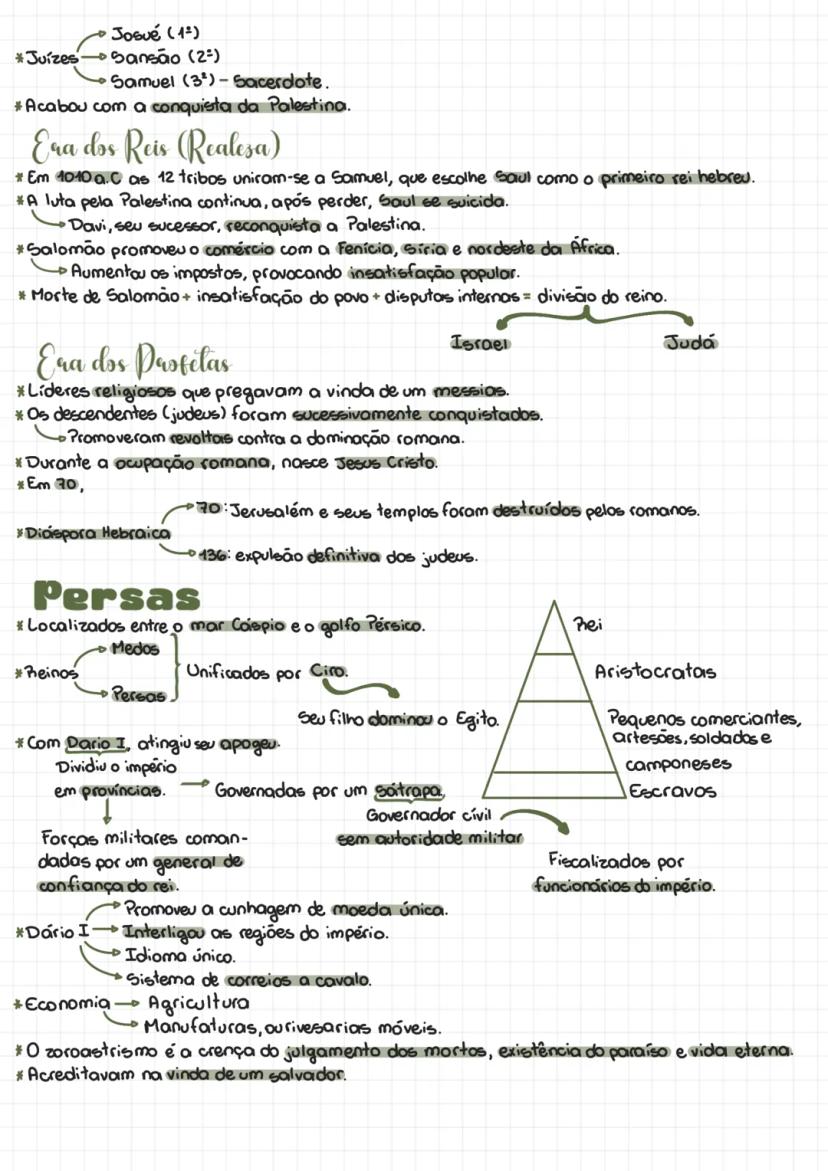 Josué (1º)
*Juízes → Sansão (2º)
Samuel (3º) - Sacerdote.
*Acabou com a conquista da Palestina.
Era dos Reis (Realeza)
*Em 1010 a.C as 12 tribos uniram-se a Samuel, que escolhe Saul como o primeiro rei hebreu.
*A luta pela Palestina continua, após perder, Saul se suicida.
Davi, seu sucessor, reconquista a Palestina.
*Salomão promoveu o comércio com a Fenícia, Síria e nordeste da África.
Aumentou os impostos, provocando insatisfação popular.
* Morte de Salomão + insatisfação do povo + disputas internas = divisão do reino.
Israel Judá
Era dos Profetas
*Líderes religiosos que pregavam a vinda de um messias.
*Os descendentes (judeus) foram sucessivamente conquistados.
Promoveram revoltas contra a dominação romana.
*Durante a ocupação romana, nasce Jesus Cristo.
*Em 70,
70: Jerusalém e seus templos foram destruídos pelos romanos.
*Diáspora Hebraica
136: expulsão definitiva dos judeus.
Persas
*Localizados entre o mar Cáspio e o golfo Pérsico.
Rei
Medos
*Reinos Unificados por Ciro.
Aristocratas
Persas
Seu filho dominou o Egito.
Pequenos comerciantes,
artesões, soldados e
camponeses
Escravos
*Com Dario I, atingiu seu apogeu.
Dividiu o império
em províncias. → Governadas por um sátrapa.
Governador cívil
sem autoridade militar
Forças militares coman-
dadas por um general de
confiança do rei.
Fiscalizados por
funcionários do império.
Promoveu a cunhagem de moeda única.
*Dário I → Interligou as regiões do império.
Idioma único.
Sistema de correios a cavalo.
*Economia → Agricultura
Manufaturas, ourivesarias móveis.
*O zoroastrismo é a crença do julgamento dos mortos, existência do paraíso e vida eterna.
*Acreditavam na vinda de um salvador.